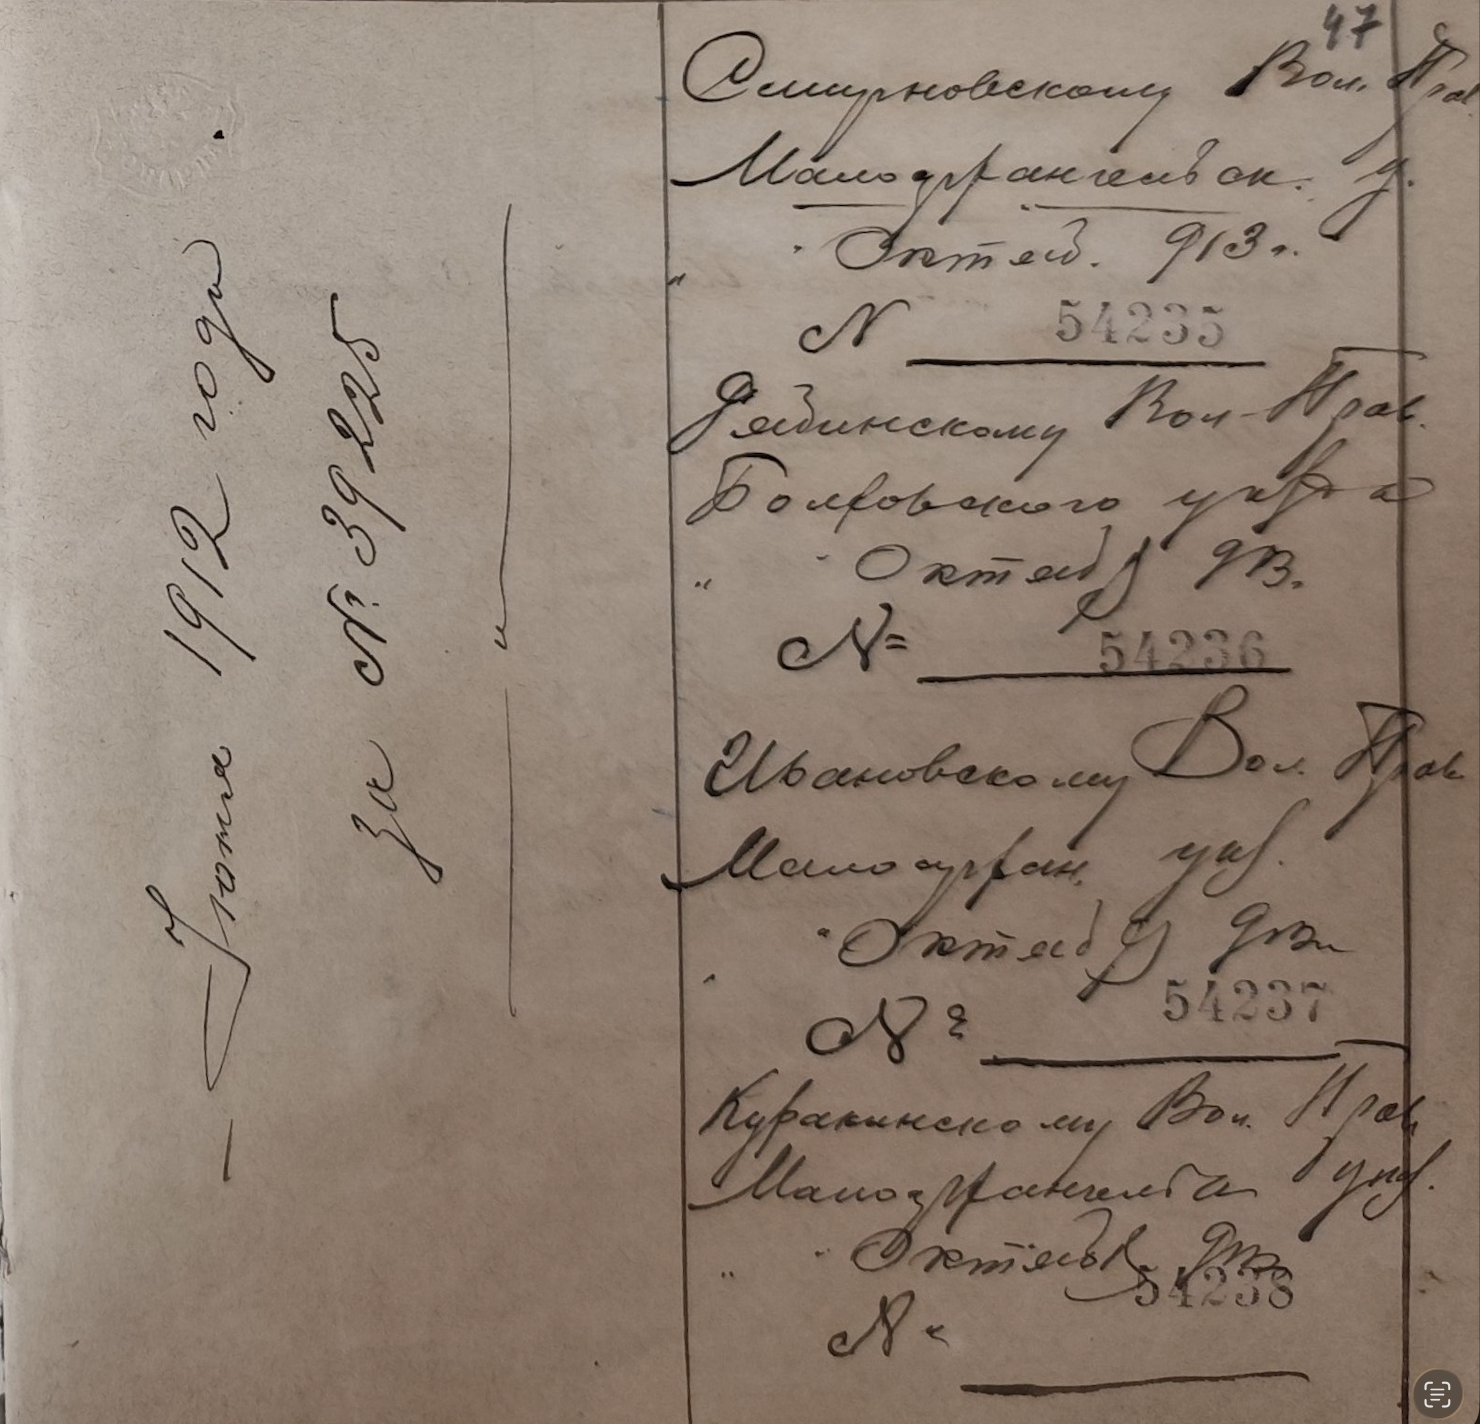 47
Смирновскому Вол. Прав.
Малоархангельск. у.
" " Октяб. 913 г.
N 54235
Рябинскому Вол. Прав.
Болховского уезда
" " Октября 913.
№ 54236
Ивановскому Вол. Прав.
Малоархан. уез.
" " Октября 913 г.
№ 54237
Куракинскому Вол. Прав.
Малоархангельск уез.
" " Октября 913
№ 54238
— Iюня 1912 года.
за №. 39225